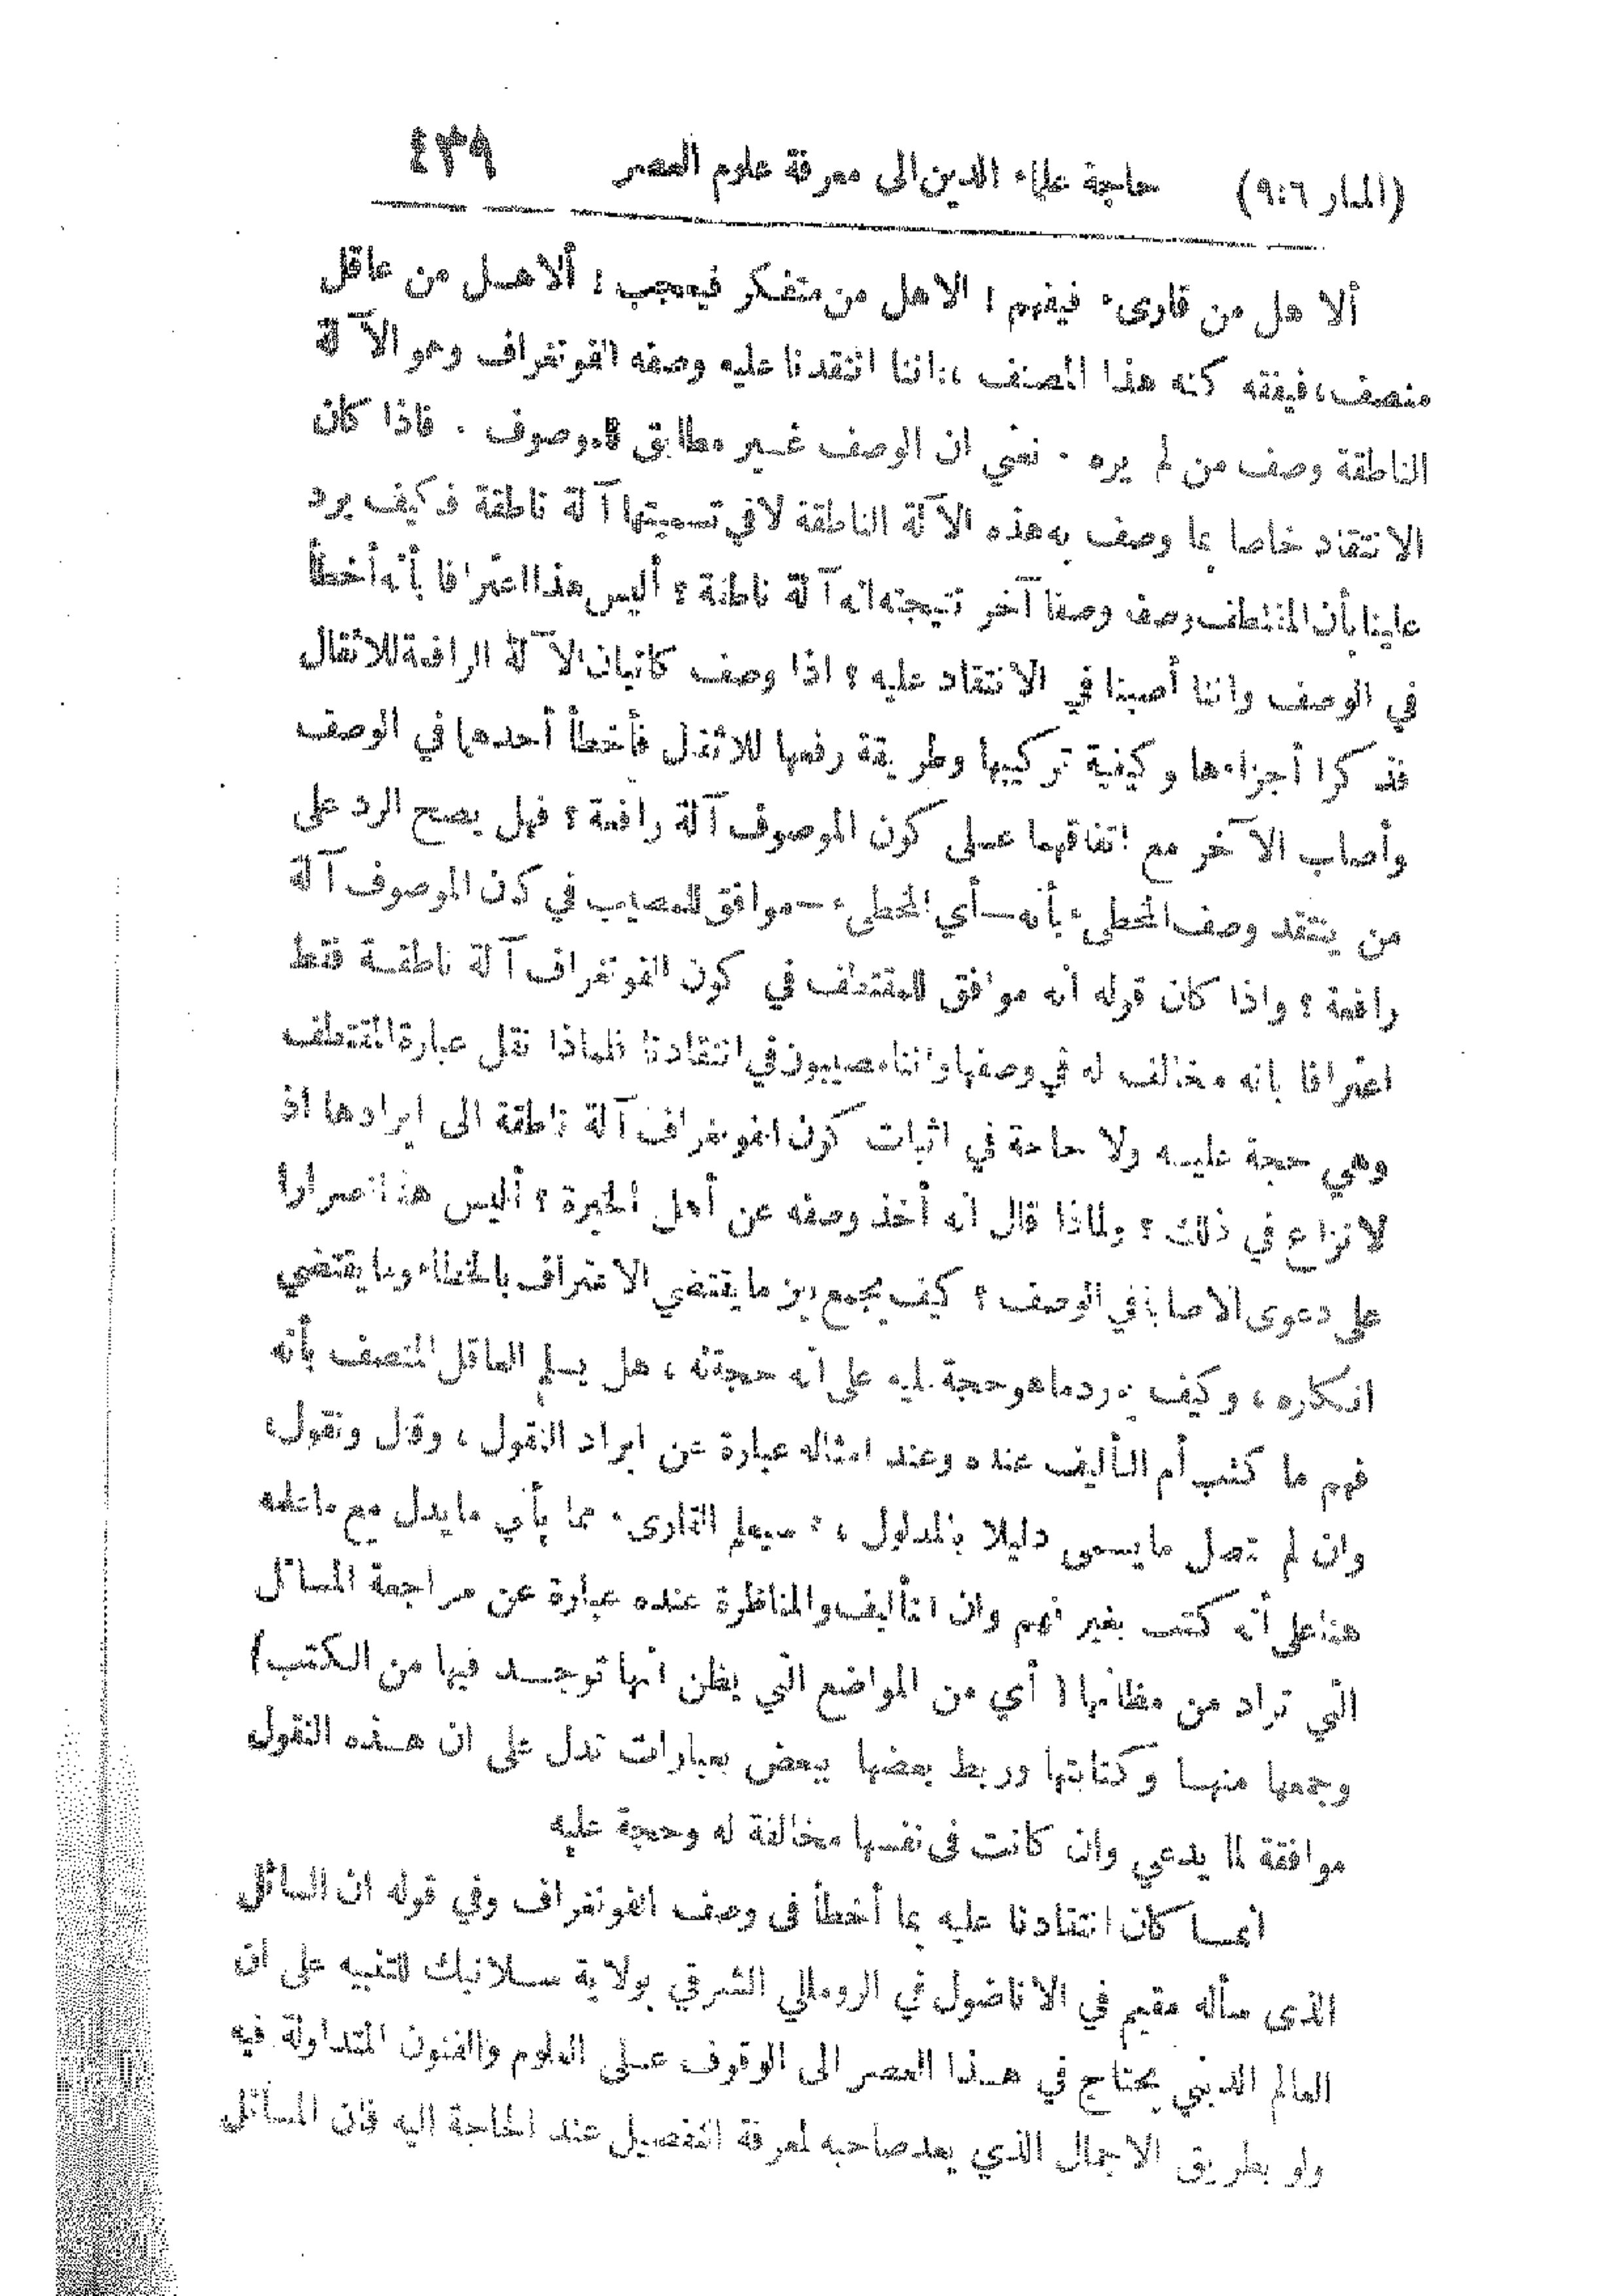 (المنار ٩:٦) حاجة علماء الدين الى معرفة علوم العصر ٤٣٩
ألا هل من قارىء فيفهم ؛ الا هل من متفكر فيعجب ؛ ألا هل من عاقل
منصف ، فيفقه كنه هذا المصنف ،: اننا انتقدنا عليه وصفه الفونغراف وهو الآلة
الناطقة وصف من لم يره . نعني ان الوصف غير مطابق للموصوف . فاذا كان
الانتقاد خاصا بما وصف به هذه الآلة الناطقة لا في تسميتها آلة ناطقة فكيف يرد
علينا بأن المقتطف وصف وصفا آخر نتيجته انه آلة ناطقة ؟ أليس هذا اعترافا بأنه أخطأ
في الوصف واننا أصبنا في الانتقاد عليه ؟ اذا وصف كاتبان الآلة الرافعة للاثقال
فذكرا أجزاءها وكيفية تركيبها وطريقة رفعها للاثقال فأخطأ أحدهما في الوصف
وأصاب الآخر مع اتفاقهما على كون الموصوف آلة رافعة ؟ فهل يصح الرد على
من ينتقد وصف المخطىء بأنه — أي المخطىء — موافق للمصيب في كون الموصوف آلة
رافعة ؟ واذا كان قوله أنه موافق للمقتطف في كون الفونغراف آلة ناطقة فقط
اعترافا بانه مخالف له في وصفها واننا مصيبون في انتقادنا فلماذا نقل عبارة المقتطف
وهي حجة عليه ولا حاجة في اثبات كون الفونغراف آلة ناطقة الى ايرادها اذ
لا نزاع في ذلك ؟ ولماذا قال انه أخذ وصفه عن أهل الخبرة ؟ أليس هذا اصرارا
على دعوى الاصابة في الوصف ؟ كيف يجمع بين ما يقتضي الاعتراف بالخطاء وما يقتضي
انكاره ، وكيف يورد ما هو حجة عليه على انه حجة له ، هل يسلم العاقل المنصف بأنه
فهم ما كتب أم التأليف عنده وعند امثاله عبارة عن ايراد النقول ، وقال ونقول،
وان لم تصل ما يسمى دليلا بالمدلول ، ؟ سيعلم القارىء مما يأتي ما يدل مع ما علمه
هنا على أنه كتب بغير فهم وان التأليف والمناظرة عنده عبارة عن مراجعة المسائل
التي تراد من مظانها ( أي من المواضع التي يظن انها توجد فيها من الكتب )
وجمعها منها وكتابتها وربط بعضها ببعض بعبارات تدل على ان هذه النقول
موافقة لما يدعي وان كانت في نفسها مخالفة له وحجة عليه
انما كان انتقادنا عليه بما أخطأ في وصف الفونغراف وفي قوله ان السائل
الذى سأله مقيم في الاناضول في الروملي الشرقي بولاية سلانيك للتنبيه على ان
العالم الديني يحتاج في هذا العصر الى الوقوف على العلوم والفنون المتداولة فيه
ولو بطريق الاجمال الذي يعد صاحبه لمعرفة التفصيل عند الحاجة اليه فان المسائل